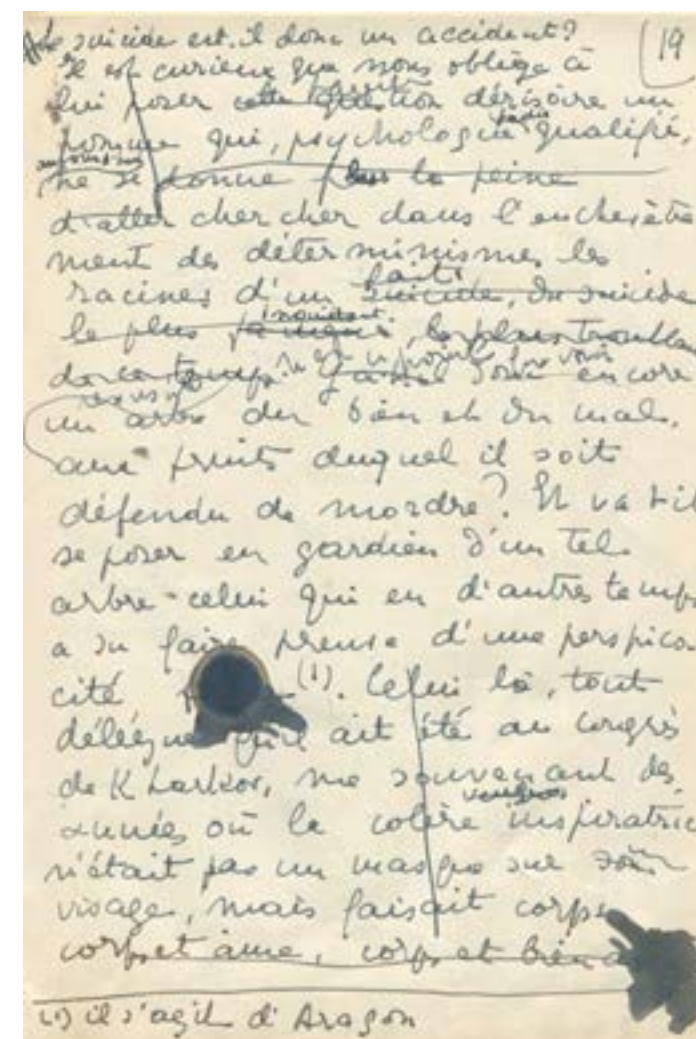 19
Le suicide est-il donc un accident?
Il est curieux que nous oblige à
lui poser cette question dérisoire un
homme qui, psychologue jadis qualifié,
aujourd'hui
ne se donne plus la peine
d'aller chercher dans l'enchevêtre
ment des déterminismes les
racines d'un suicide, du suicide
faits
le plus inquiétant, le plus troublan
de ce temps. encore
un arbre du bien et du mal,
aux fruits duquel il soit
défendu de mordre? Et va t-il
se poser en gardien d'un tel
arbre - celui qui en d'autres temps
a su faire preuve d'une perspica
cité (1). Celui là, tout
délégué qu'il ait été au congrès
de Kharkov, me souvenant des
années où la colère vengeresse inspiratrice
n'était pas un masque sur son
visage, mais faisait corps
corps et âme, corps et bien
(1) il s'agit d'Aragon